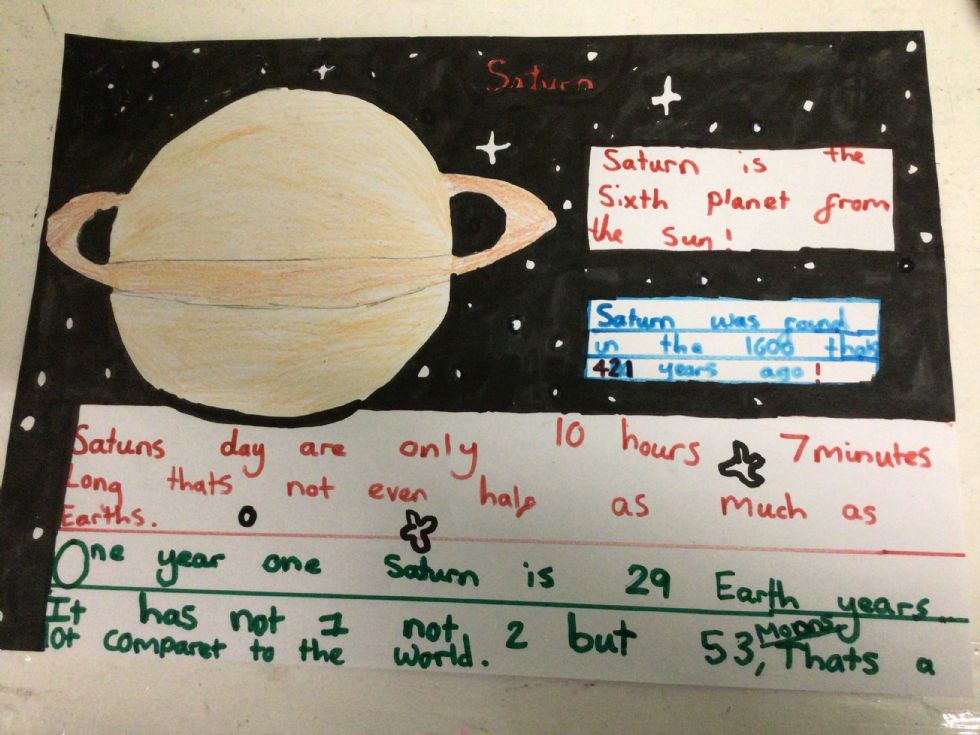 Saturn
Saturn is the
Sixth planet from
the Sun!
Saturn was found
in the 1600 thats
421 years ago!
Satuns day are only 10 hours 7minutes
Long thats not even half as much as
Earths.
One year one Saturn is 29 Earth years
It has not 1 not 2 but 53, Moons Thats a
lot comparet to the world.